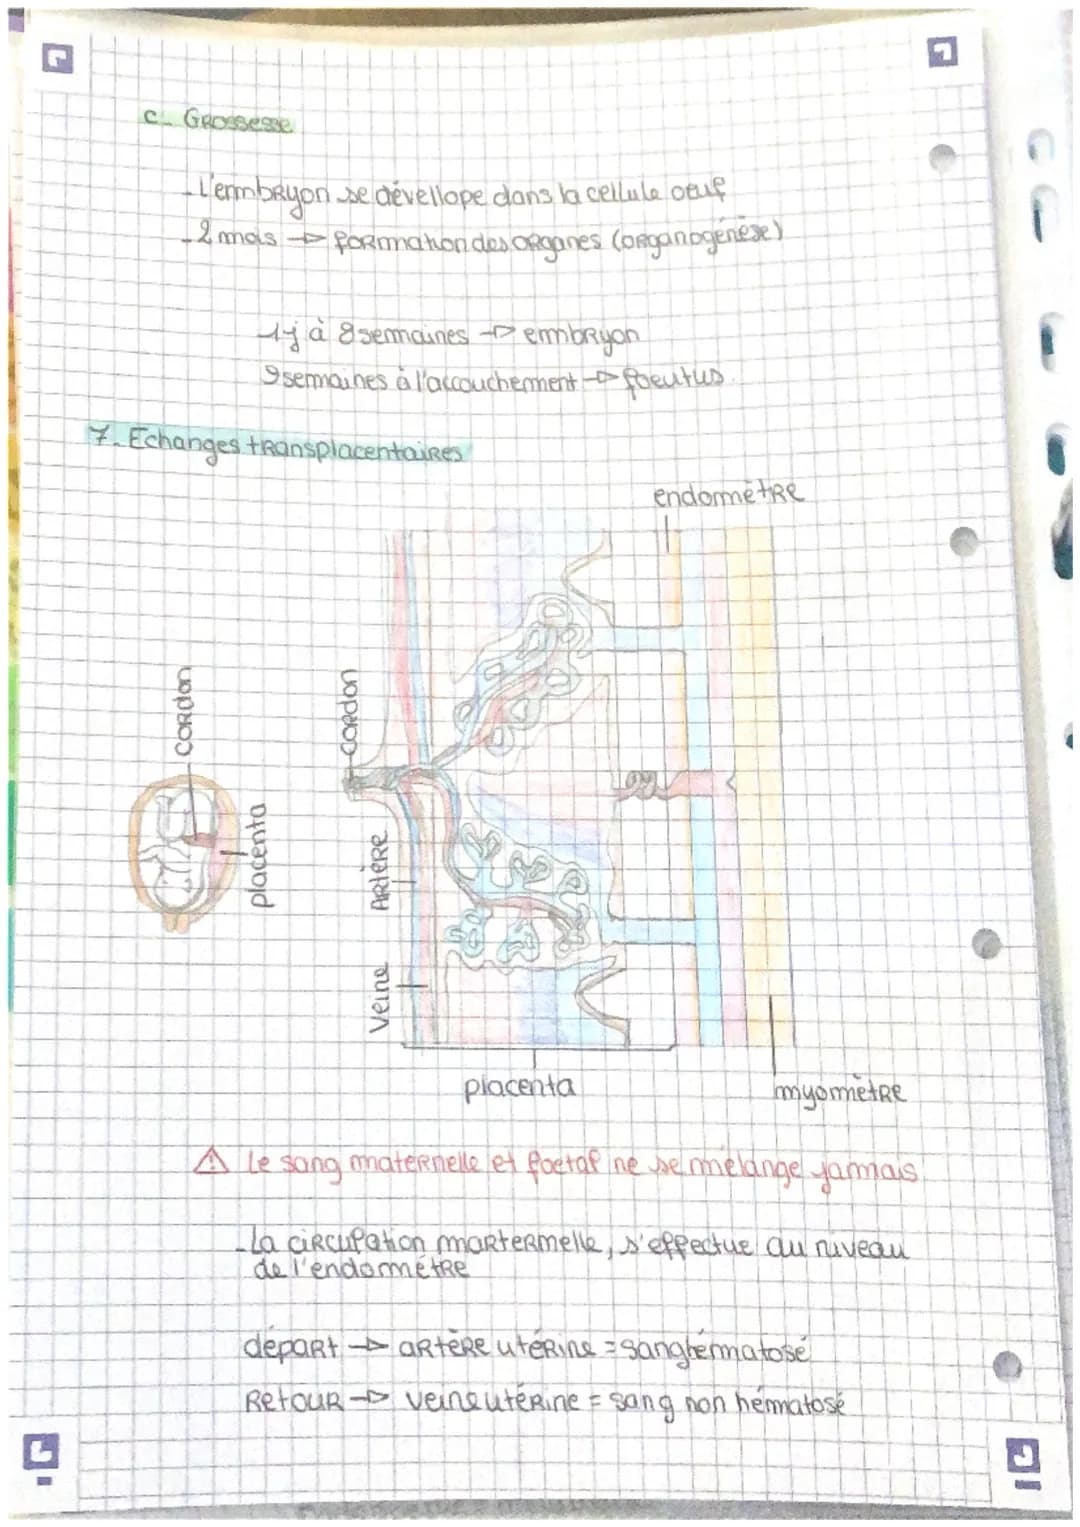 c_ Grossesse
- L'emmbryon se dévellope dans la cellule oeuf
- 2 mois → formation des organes (organogénèse)
1j à 8 semaines → emmbryon
9 semaines à l'accouchement → foeutus.
7. Echanges transplacentaires
endomètre
cordon
cordon
placenta
Artère
Veine
placenta
myomètre
⚠ Le sang maternelle et foetal ne se mélange jamais.
- La circulation martermelle, s'effectue au niveau
de l'endomètre
départ → artère utérine = sang hématosé
Retour → veine utérine = sang non hématosé